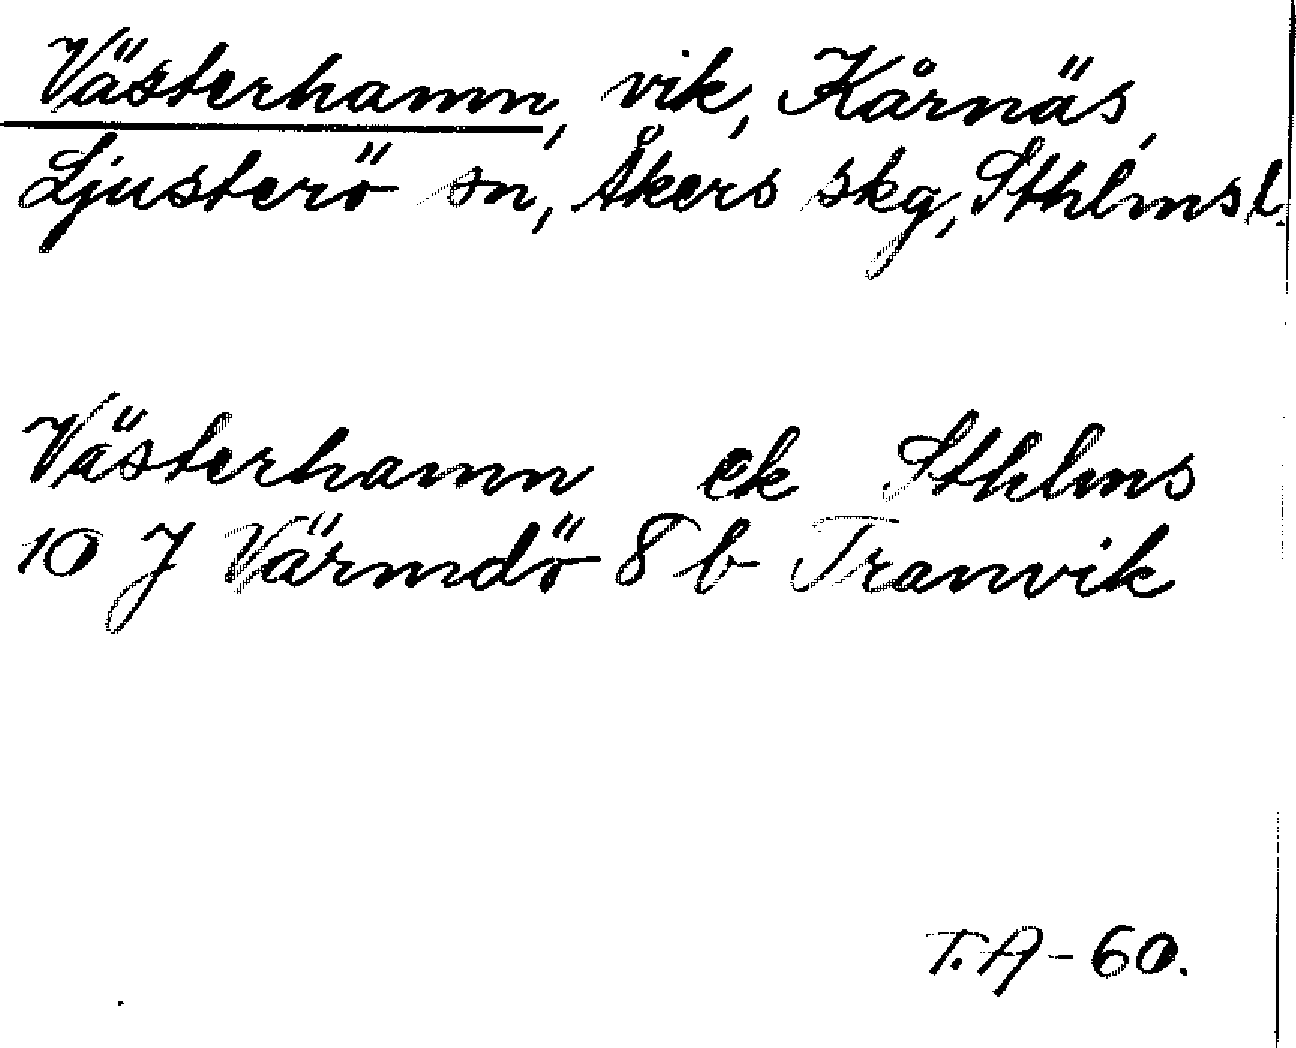 Västerhamn, vik, Kårnäs,
Ljusterö sn, Åkers skg, Sthlms l.
Västerhamn ek Sthlms
10 J Värmdö 8 b Tranvik
T.A-60.